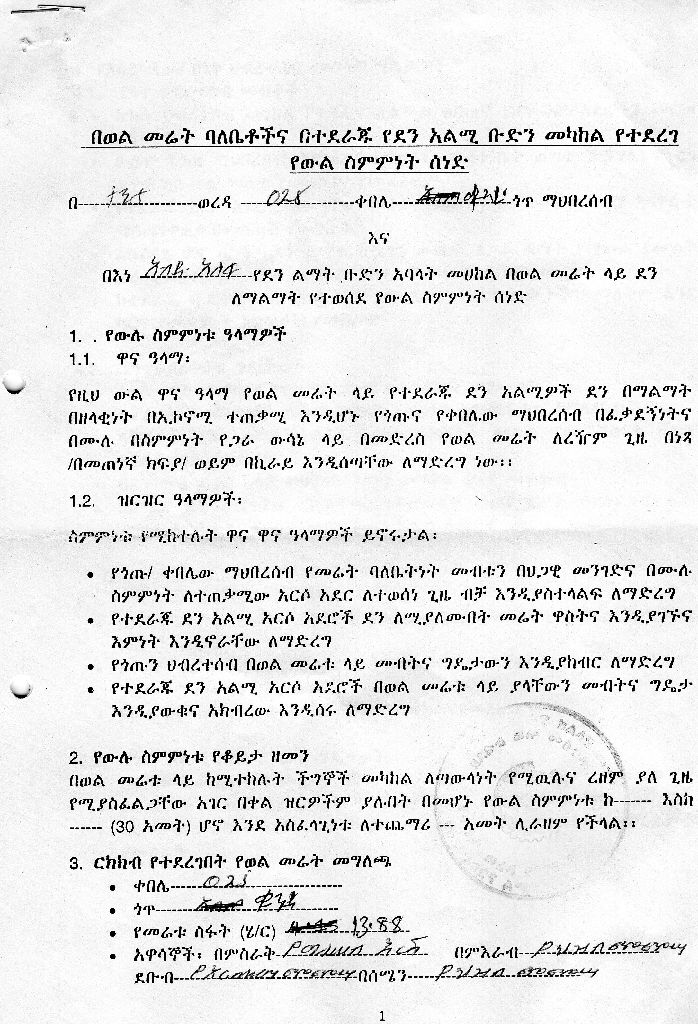 በወል መሬት ባለቤቶችና በተደራጁ የደን አልሚ ቡድን መካከል የተደረገ
የውል ስምምነት ሰነድ
በ--------------------ወረዳ ----028------------ቀበሌ----------------ጎጥ ማህበረሰብ
እና
በእነ የደን ልማት ቡድን አባላት መሀከል በወል መሬት ላይ ደን
ለማልማት የተወሰደ የውል ስምምነት ሰነድ
1. . የውሉ ስምምነቱ ዓላማዎች
1.1. ዋና ዓላማ፡
የዚህ ውል ዋና ዓላማ የወል መሬት ላይ የተደራጁ ደን አልሚዎች ደን በማልማት
በዘላቂነት በኢኮኖሚ ተጠቃሚ እንዲሆኑ የጎጡና የቀበሌው ማህበረሰብ በፈቃደኝነትና
በሙሉ በስምምነት የጋራ ውሳኔ ላይ በመድረስ የወል መሬት ለረዥም ጊዜ በነጻ
/በመጠነኛ ክፍያ/ ወይም በኪራይ እንዲሰጣቸው ለማድረግ ነው፡፡
1.2. ዝርዝር ዓላማዎች፡
ስምምነቱ የሚከተሉት ዋና ዋና ዓላማዎች ይኖሩታል፡
• የጎጡ/ ቀበሌው ማህበረሰብ የመሬት ባለቤትነት መብቱን በህጋዊ መንገድና በሙሉ
ስምምነት ለተጠቃሚው አርሶ አደር ለተወሰነ ጊዜ ብቻ እንዲያስተላልፍ ለማድረግ
• የተደራጁ ደን አልሚ አርሶ አደሮች ደን ለሚያለሙበት መሬት ዋስትና እንዲያገኙና
እምነት እንዲኖራቸው ለማድረግ
• የጎጡን ህብረተሰብ በወል መሬቱ ላይ መብትና ግዴታውን እንዲያከብር ለማድረግ
• የተደራጁ ደን አልሚ አርሶ አደሮች በወል መሬቱ ላይ ያላቸውን መብትና ግዴታ
እንዲያውቁና አክብረው እንዲሰሩ ለማድረግ
2. የውሉ ስምምነቱ የቆይታ ዘመን
በወል መሬቱ ላይ ከሚተከሉት ችግኞች መካከል ለጣውላነት የሚዉሉና ረዘም ያለ ጊዜ
የሚያስፈልጋቸው አገር በቀል ዝርዎችም ያሉበት በመሆኑ የውል ስምምነቱ ከ------- እስከ
------ (30 አመት) ሆኖ እንደ አስፈላጊነቱ ለተጨማሪ --- አመት ሊራዘም የችላል፡፡
3. ርክክብ የተደረገበት የወል መሬት መግለጫ
• ቀበሌ-------------------------
• ጎጥ-------------------------
• የመሬቱ ስፋት (ሄ/ር) 13.88
• አዋሳኞች፡ በምስራቅ በምእራብ
ደቡብ በሰሜን
1